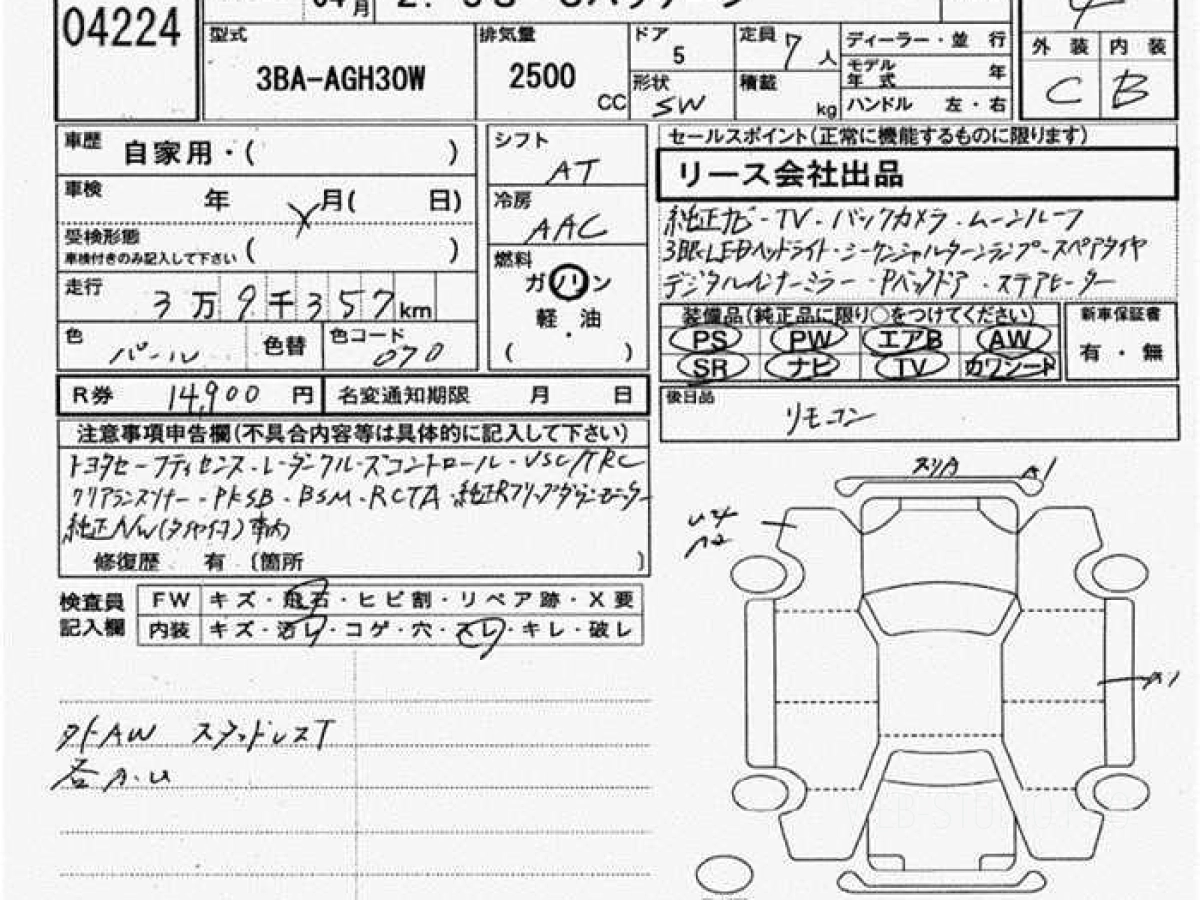 04224
月
型式 3BA-AGH30W
排気量 2500 CC
ドア 5
形状 SW
定員 7 人
積載 kg
ディーラー・並 行
モデル年式 年
ハンドル 左・右
外 装 内 装
C B
車歴 自家用・( )
車検 年 月( 日)
受検形態
車検付きのみ記入して下さい ( )
走行 3万9千357km
色 パール 色替 色コード 070
シフト AT
冷房 AAC
燃料
ガソリン
軽・油
( )
セールスポイント(正常に機能するものに限ります)
リース会社出品
純正ナビ・TV・バックカメラ・ムーンルーフ
3眼LEDヘッドライト・シーケンシャルターンランプ・スペアタイヤ
デジタルインナーミラー・Pバックドア・ステアヒーター
装備品(純正品に限り○をつけてください)
PS PW エアB AW
SR ナビ TV カワシート
新車保証書
有・無
後日品
リモコン
R券 14,900 円 名変通知期限 月 日
注意事項申告欄(不具合内容等は具体的に記入して下さい)
トヨタセーフティセンス・レーダークルーズコントロール・VSC/TRC
クリアランスソナー・PKSB・BSM・RCTA・純正Rフリップダウンモニター
純正NW(タイヤ付)車内
修復歴 有 〔箇所 〕
検査員記入欄
FW キズ・飛石・ヒビ割・リペア跡・X要
内装 キズ・汚レ・コゲ・穴・スレ・キレ・破レ
外AW スタッドレスT
スリ A A1
A1